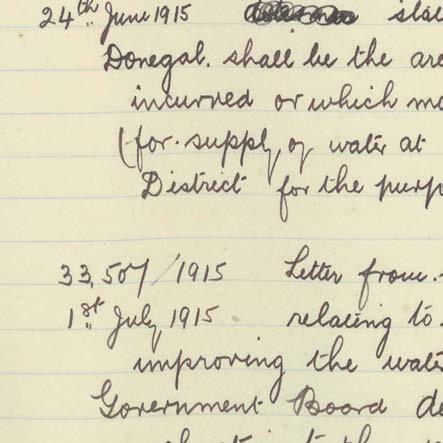 24th June 1915
Donegal. shall be the are
incurred or which m
(for supply of water at
District for the purp
33,507/1915 Letter from
1st July 1915 relating to
improving the wate
Government Board de